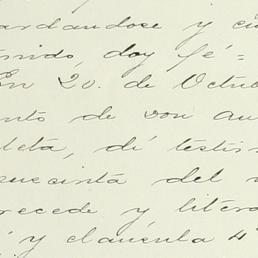 ardandose y cu
tenido, doy fé =
En 20. de Octub
nto de don au
leta, dí testim
sucinta del
recede y litera
y clausula 4ª